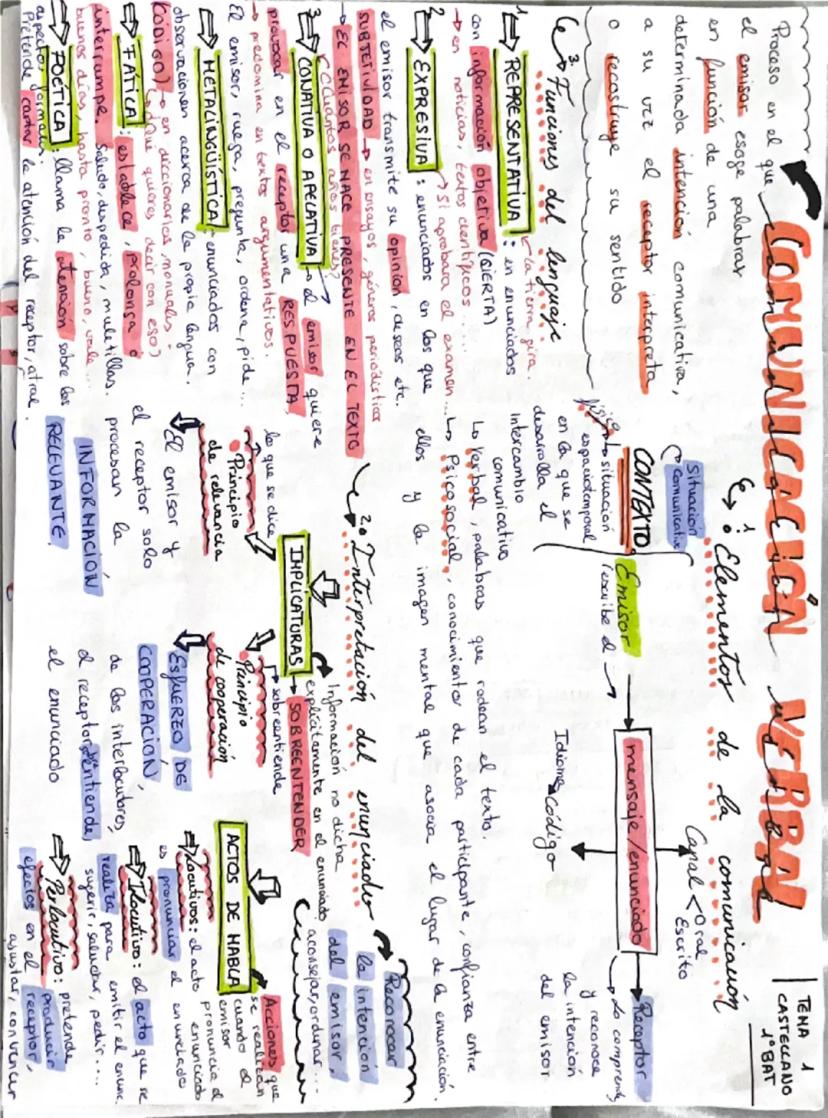 TEMA 1
CASTELLANO
1º BAT
COMUNICACIÓN VERBAL
Proceso en el que
el emisor esoge palabras
en función de una
determinada intención comunicativa,
a su vez el receptor interpreta
o recostruye su sentido
1. Elementos de la comunicación
Situación
comunicativa
CONTEXTO
Física
situación
espaciotemporal
en la que se
desarrolla el
intercambio
comunicativo
Emisor
escribe el
mensaje/enunciado
Canal < Oral
Escrito
Idioma Código
Receptor
Lo comprende
y reconoce
la intención
del emisor
Verbal, palabras que rodean el texto.
Psicosocial, conocimientos de cada participante, confianza entre
ellos y la imagen mental que asocia el lugar de la enunciación.
2. Interpretación del enunciado
Reconocer
la intención
del emisor,
aconsejar, ordenar...
IMPLICATURAS
Información no dicha
explícitamente en el enunciado,
SOBREENTENDER
lo que se dice
Principio
de relevancia
El emisor y
el receptor solo
procesan la
INFORMACIÓN
RELEVANTE
sobreentiende
Principio
de cooperación
Esfuerzo DE
COOPERACIÓN,
de los interlocutores,
el receptor entiende
el enunciado
ACTOS DE HABLA
Acciones que
se realizan
cuando el
emisor
pronuncia el
enunciado
Locutivos: el acto
es pronunciar el enunciado
Ilocutivo: el acto que se
realiza para emitir el enunc.
sugerir, saludar, pedir...
Perlocutivo: pretende
producir
efectos en el receptor,
asustar, convencer
3. Funciones del lenguaje
La tierra gira
1 REPRESENTATIVA: en enunciados
con información objetiva (CIERTA)
→ en noticias, textos científicos...
Si aprobara el examen...
2 EXPRESIVA: enunciados en los que
el emisor transmite su opinión, deseos etc.
SUBJETIVIDAD → en ensayos, géneros periodísticos
→ EL EMISOR SE HACE PRESENTE EN EL TEXTO
¿Cuántos años tienes?
3 CONATIVA O APELATIVA → el emisor quiere
provocar en el receptor una RESPUESTA,
→ predomina en textos argumentativos.
El emisor, ruega, pregunta, ordena, pide...
METALINGÜÍSTICA, enunciados con
observaciones acerca de la propia lengua.
(CÓDIGO) → en diccionarios, manuales.
(¿Que quieres decir con eso)
FÁTICA: establece, prolonga o
interrumpe. Saludo, despedida, muletillas
buenos días, hasta pronto, bueno, vale...
POÉTICA llama la atención sobre los
aspectos formales
Pretende captar la atención del receptor, atrae.